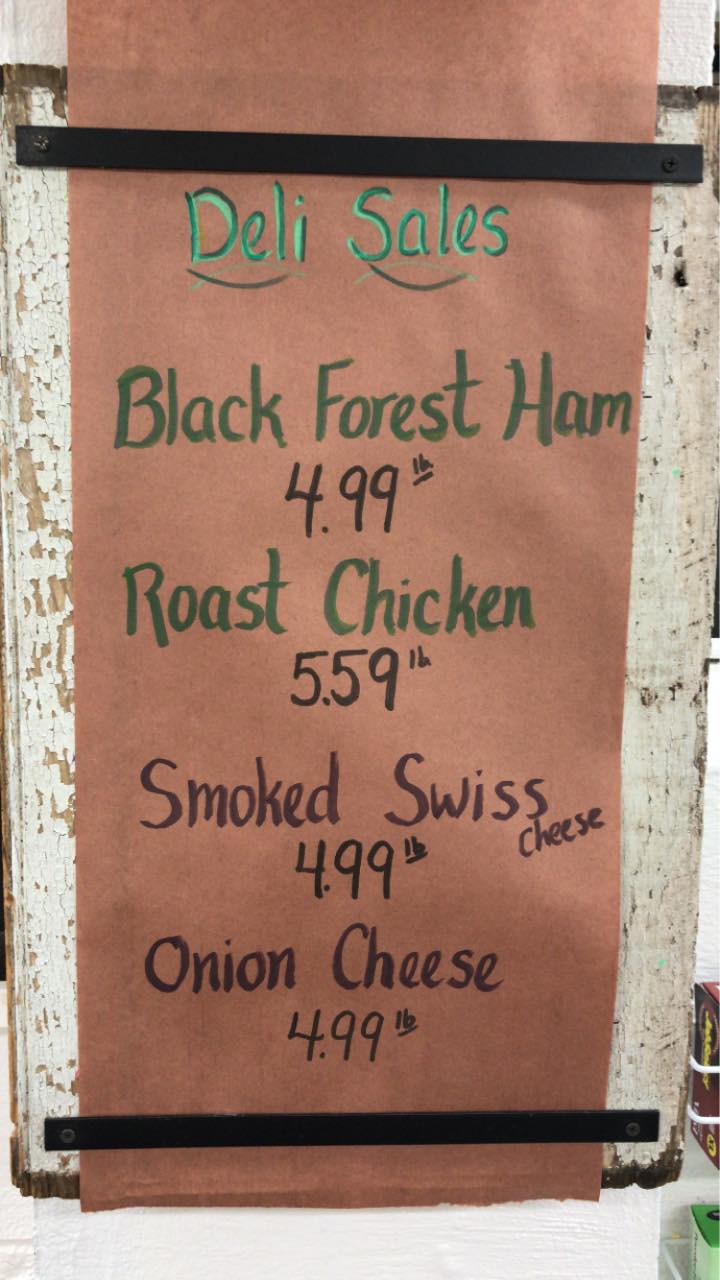 Deli Sales
Black Forest Ham
4.99 lb
Roast Chicken
5.59 lb
Smoked Swiss
cheese
4.99 lb
Onion Cheese
4.99 lb